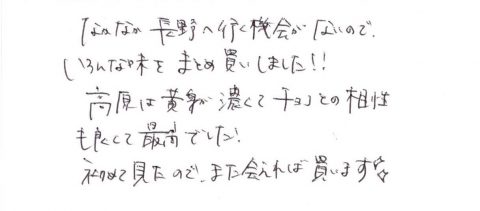 なかなか長野へ行く機会がないので、
いろんな味をまとめ買いしました!!
高原は黄身が濃くてチョコとの相性
も良くて最高でした!
初めて見たので、また会えれば買います☆